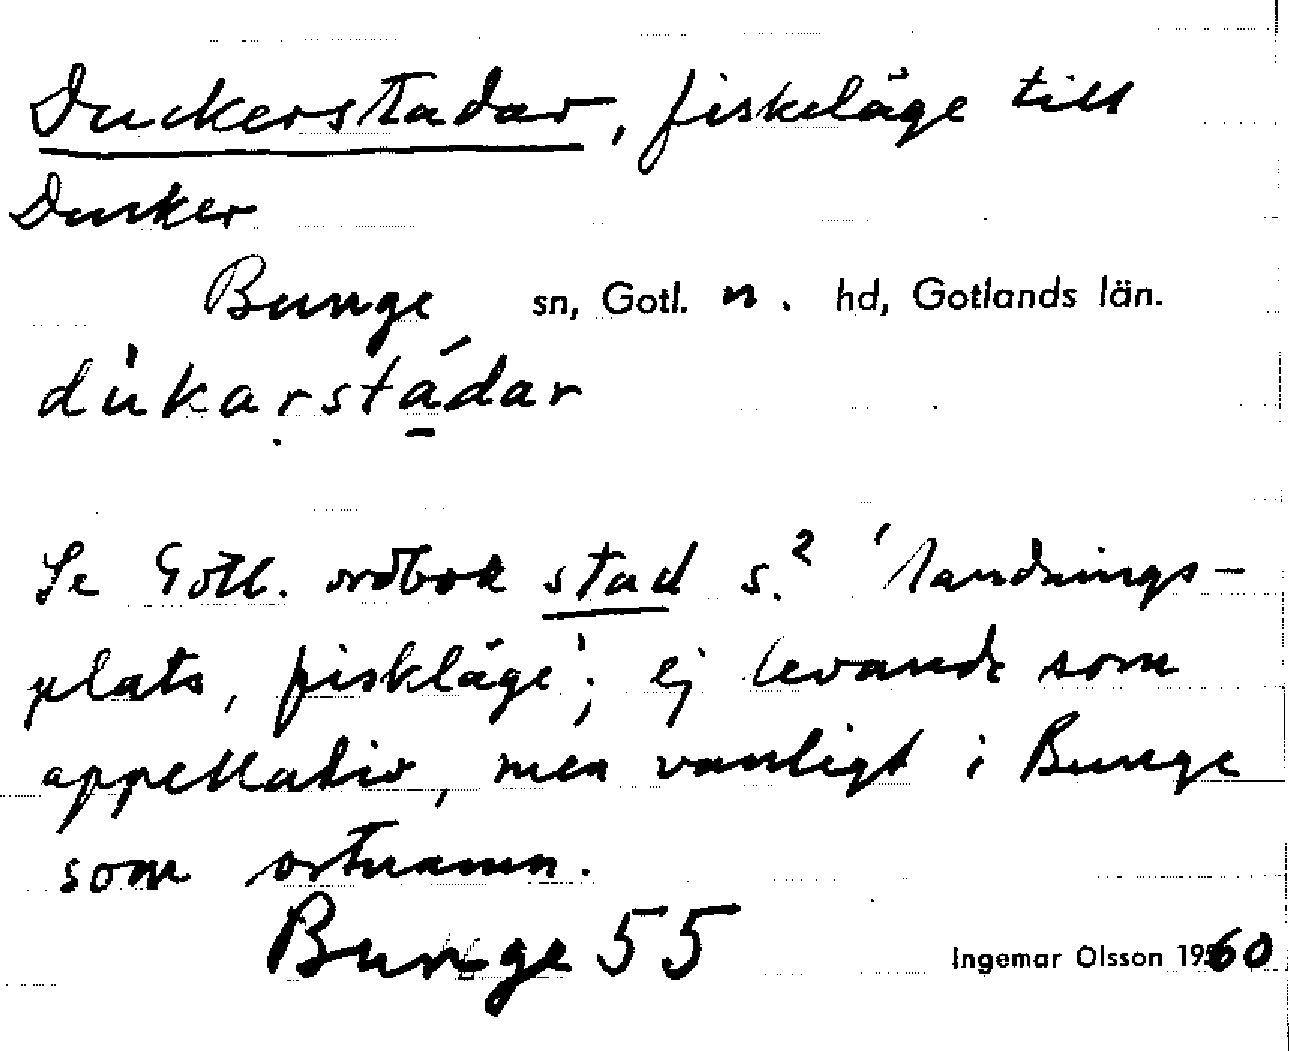 Duckerstadar, fiskeläge till
Ducker
Bunge sn, Gotl. n. hd, Gotlands län.
dùkarstádar
Se Gotl. ordbok stad s.² 'landnings-
plats, fiskläge'; ej levande som
appellativ, men vanligt i Bunge
som ortnamn.
Bunge 55
Ingemar Olsson 1960